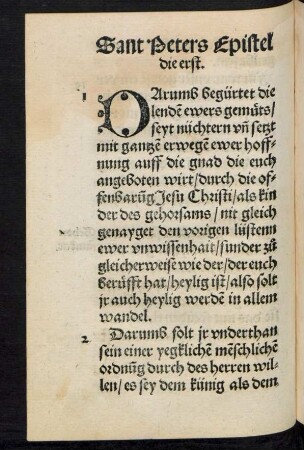 Sant Peters Epistel
die erst.
1 DArumb begürtet die
lendē ewers gemuͤts/
seyt nüchtern vñ setzt
mit gantzē erwegē ewer hoff
nung auff die gnad die euch
angeboten wirt/durch die of
fenbarūg Jesu Christi/als kin
der des gehorsams/nit gleich
genayget den vorigen lüstenn
ewer vnwissenhait/sunder zů
gleicherweise wie der/der euch
berüfft hat/heylig ist/also solt
jr auch heylig werdē in allem
wandel.
2 Darumb solt jr vnderthan
sein einer yegklichē mēschlichē
ordnūg durch des herren wil
len/es sey dem künig als dem